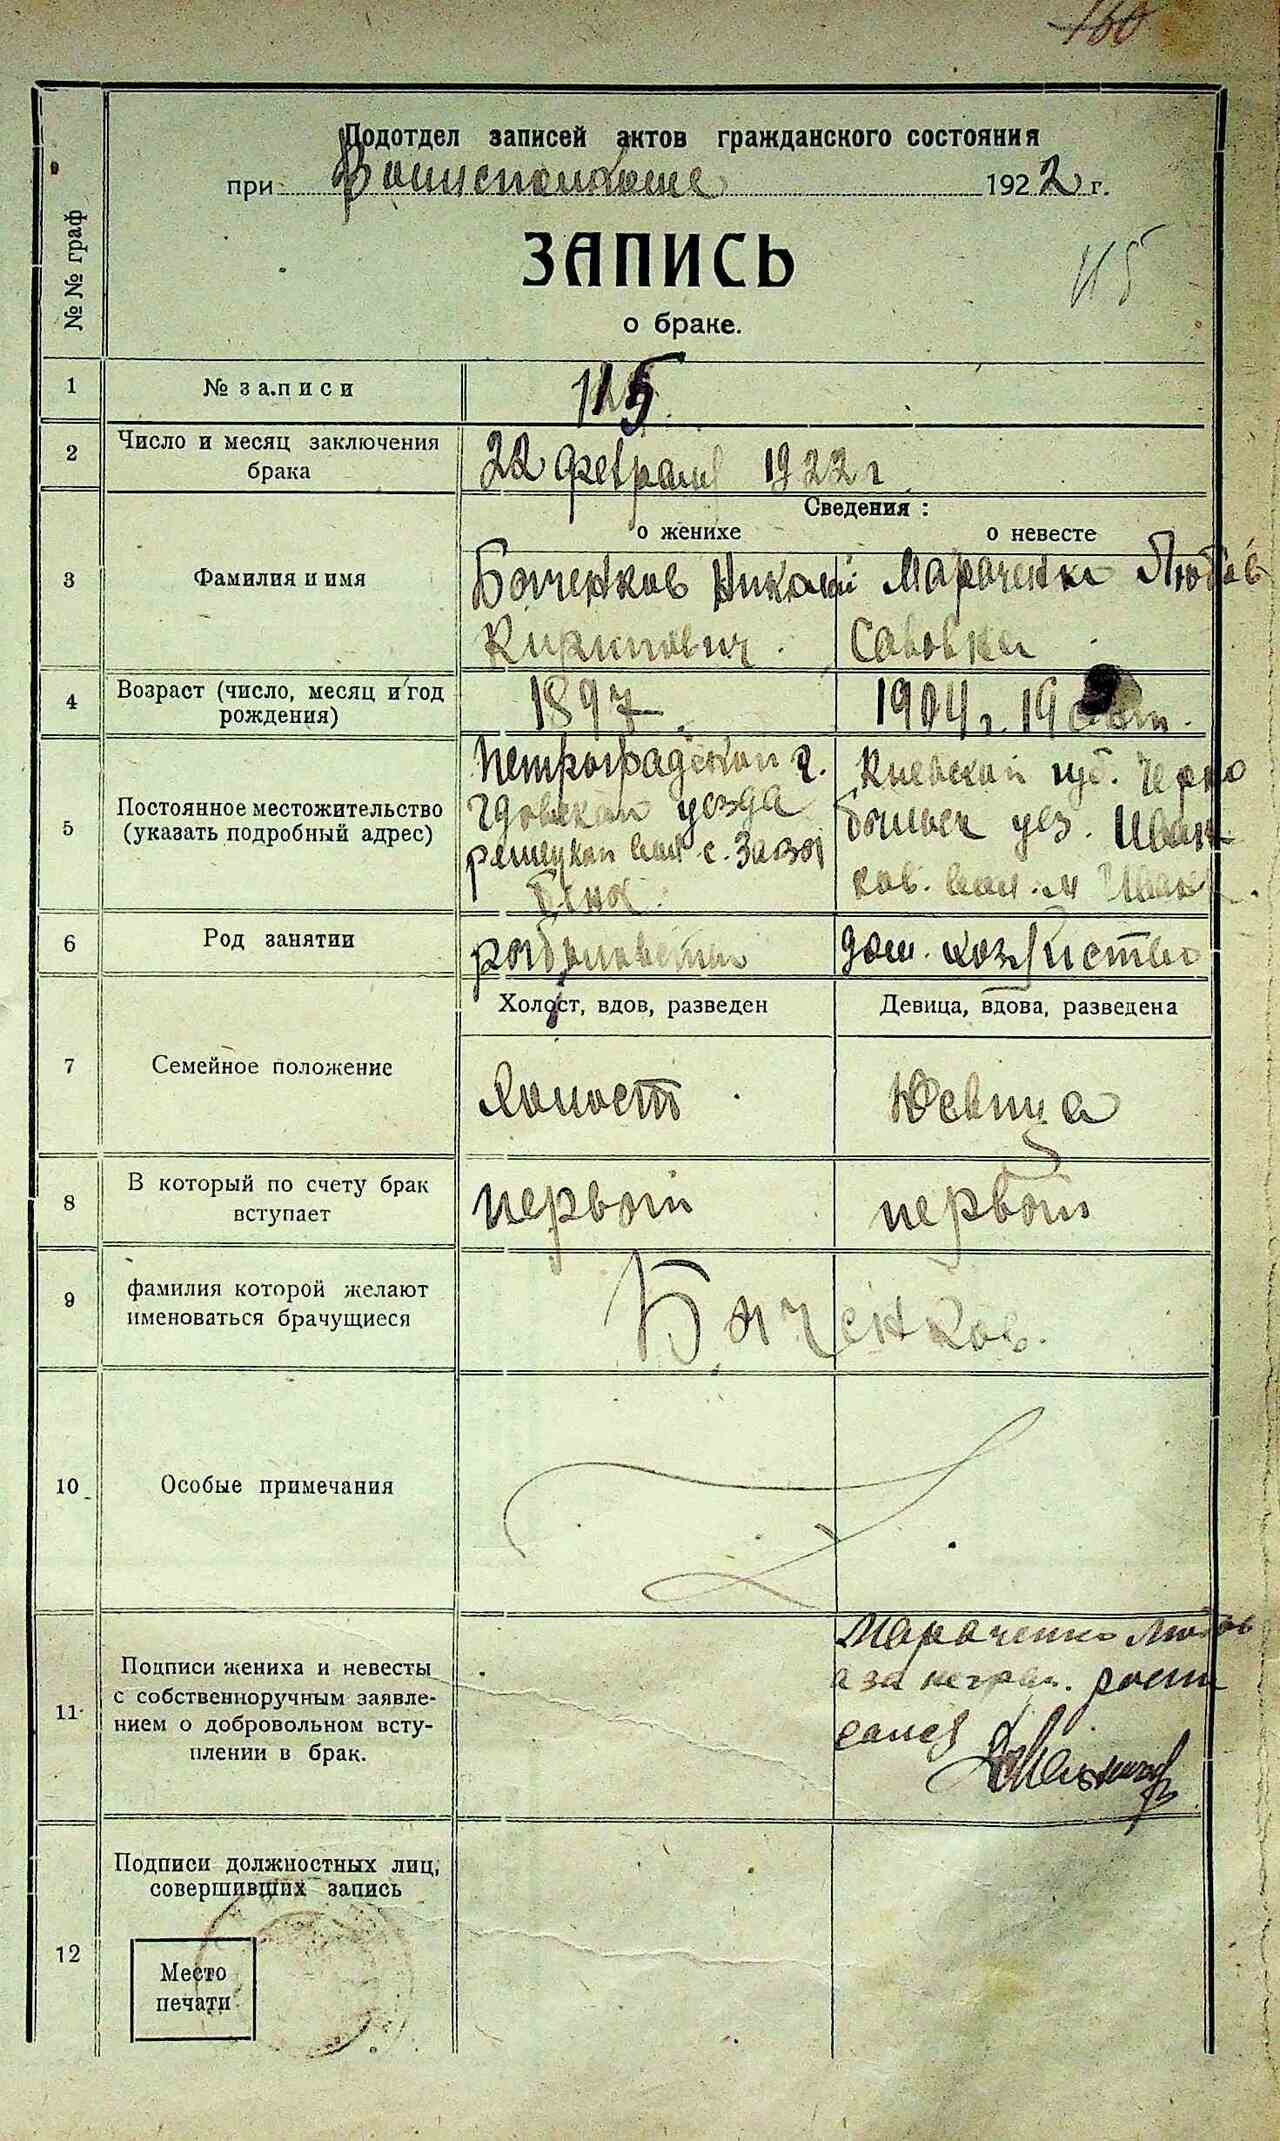 160
Подотдел записей актов гражданского состояния
при Волисполкоме 1922 г.
№№ граф
ЗАПИСЬ
о браке.
115
1 № записи 115
2 Число и месяц заключения брака
22 февраля 1922 г
Сведения:
о женихе о невесте
3 Фамилия и имя
Баченков Николай Марченко Любов
Кирилович Савовна
4 Возраст (число, месяц и год рождения)
1897 1904 г. 19
5 Постоянное местожительство (указать подробный адрес)
Петроградской г. Киевской губ. Черно
Гдовскаи уезда больск уез. Иван
вол. с. ков. вол. м Иванк
6 Род занятии
дом. хозяйство
Холост, вдов, разведен Девица, вдова, разведена
7 Семейное положение
Холост Девица
8 В который по счету брак вступает
первой первой
9 фамилия которой желают именоваться брачущиеся
Баченков.
10 Особые примечания
11 Подписи жениха и невесты
с собственноручным заявле-
нием о добровольном всту-
плении в брак.
Марченко Любов
а за неграм. роспи
салсы
12 Подписи должностных лиц,
совершивших запись
Место
печати